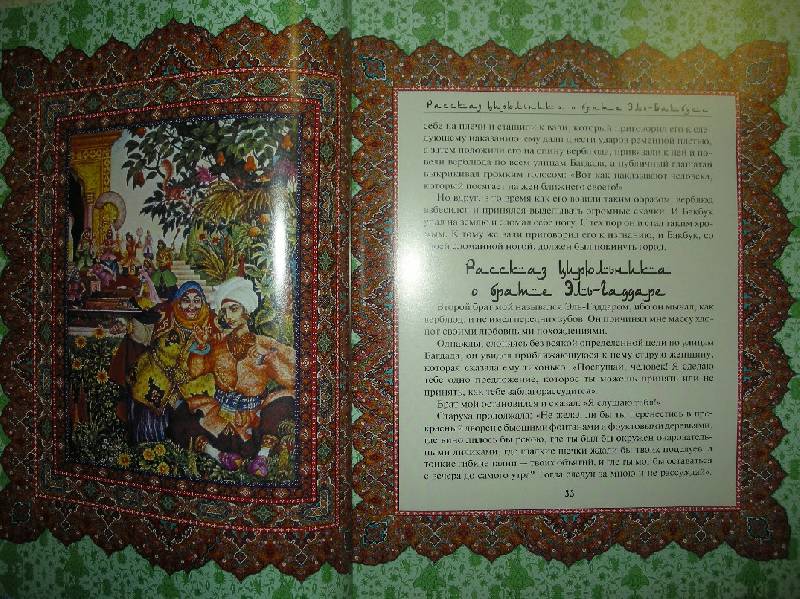 Рассказ цирюльника о брате Эль-Бакбуке
себе на плечи и стащили к вали, который приговорил его к сле-
дующему наказанию: ему дали двести ударов ременной плетью,
а затем положили его на спину верблюда, привязали к ней и по-
везли верблюда по всем улицам Багдада, а публичный глашатай
выкрикивал громким голосом: «Вот как наказывают человека,
который посягает на жен ближнего своего!»
Но вдруг, в то время как его возили таким образом, верблюд
взбесился и принялся выделывать огромные скачки. И Бакбук
упал на землю и сломал себе ногу. С тех пор он и стал таким хро-
мым. К тому же вали приговорил его к изгнанию, и Бакбук, со
своей сломанной ногой, должен был покинуть город.
Рассказ цирюльника
о брате Эль-Гаддаре
Второй брат мой назывался Эль-Гаддаром, ибо он мычал, как
верблюд, и не имел передних зубов. Он причинял мне массу хло-
пот своими любовными похождениями.
Однажды, слоняясь без всякой определенной цели по улицам
Багдада, он увидел приближающуюся к нему старую женщину,
которая сказала ему тихонько: «Послушай, человек! Я сделаю
тебе одно предложение, которое ты можешь принять или не
принять, как тебе заблагорассудится».
Брат мой остановился и сказал: «Я слушаю тебя!»
Старуха продолжала: «Не желал ли бы ты перенестись в пре-
красный дворец с бьющими фонтанами и фруктовыми деревьями,
где вино лилось бы рекою, где ты был бы окружен очарователь-
ными личиками, где гладкие щечки ждали бы твоих поцелуев, а
тонкие гибкие талии — твоих объятий, и где ты мог бы оставаться
с вечера до самого утра? Тогда следуй за мною и не рассуждай».
35